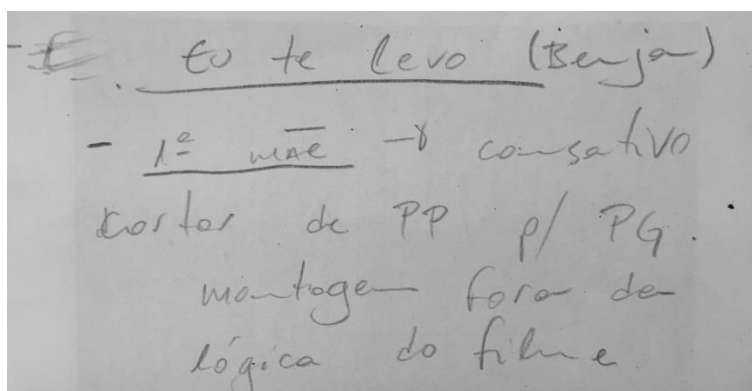 - E. Eu te levo (Benja)
- 1ª mãe → cansativo
cortar de PP p/ PG.
montagem fora da
lógica do filme